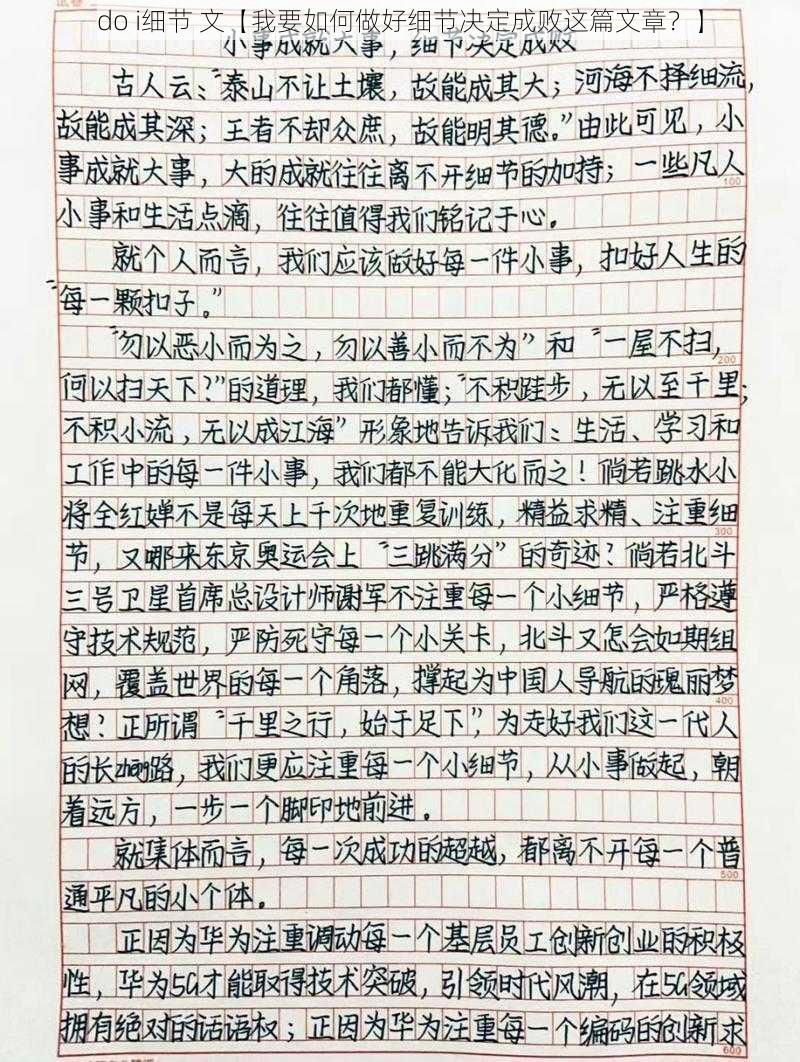 do i细节 文【我要如何做好细节决定成败这篇文章？】
小事成就大事，细节决定成败
古人云："泰山不让土壤，故能成其大；河海不择细流，
故能成其深；王者不却众庶，故能明其德。"由此可见，小
事成就大事，大的成就往往离不开细节的加持；一些凡人
100
小事和生活点滴，往往值得我们铭记于心。
就个人而言，我们应该做好每一件小事，扣好人生的
"每一颗扣子。"
"勿以恶小而为之，勿以善小而不为"和"一屋不扫，
200
何以扫天下？"的道理，我们都懂；"不积跬步，无以至千里；
不积小流，无以成江海"形象地告诉我们：生活、学习和
工作中的每一件小事，我们都不能大化而之！倘若跳水小
将全红婵不是每天上千次地重复训练，精益求精、注重细
300
节，又哪来东京奥运会上"三跳满分"的奇迹？倘若北斗
三号卫星首席总设计师谢军不注重每一个小细节，严格遵
守技术规范，严防死守每一个小关卡，北斗又怎会如期组
网，覆盖世界的每一个角落，撑起为中国人导航的瑰丽梦
400
想？正所谓"千里之行，始于足下"，为走好我们这一代人
的长zheng路，我们更应注重每一个小细节，从小事做起，朝
着远方，一步一个脚印地前进。
就集体而言，每一次成功的超越，都离不开每一个普
500
通平凡的小个体。
正因为华为注重调动每一个基层员工创新创业的积极
性，华为5G才能取得技术突破，引领时代风潮，在5G领域
拥有绝对的话语权；正因为华为注重每一个编码的创新求
600